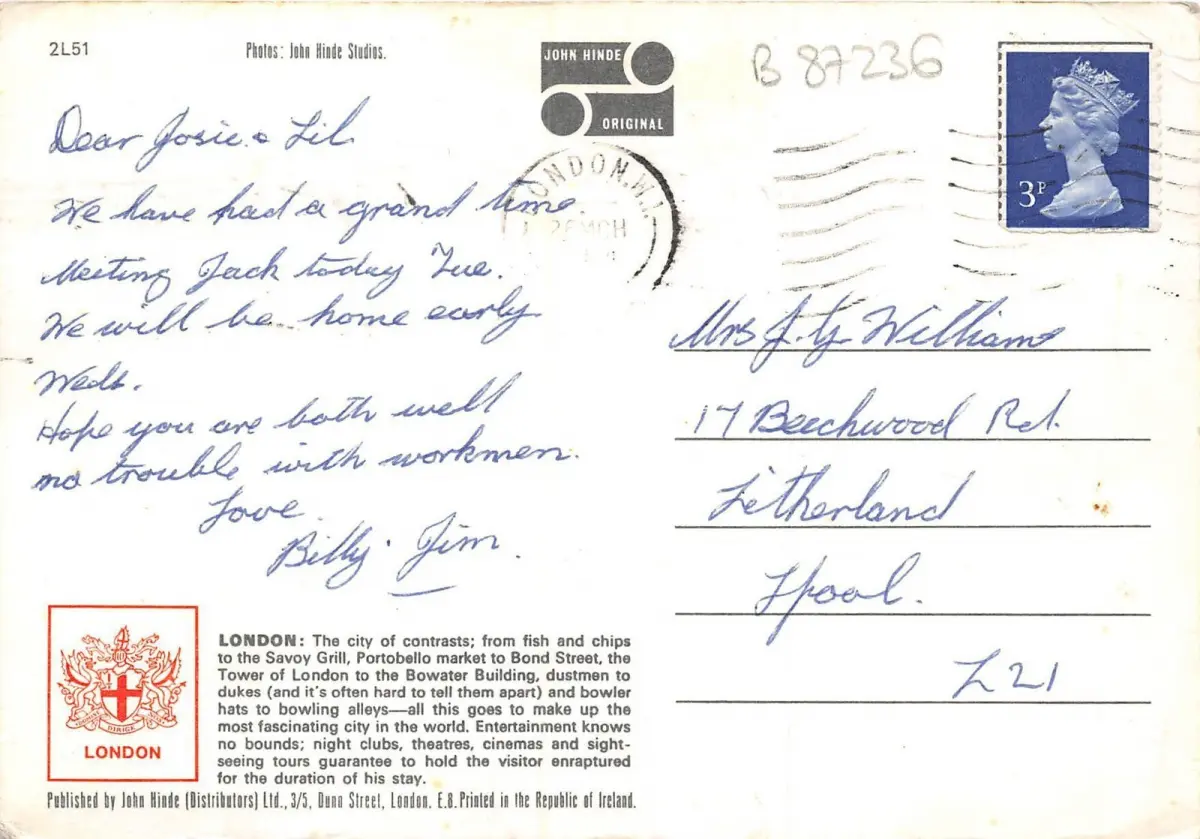 2L51
Photos: John Hinde Studios.
JOHN HINDE
ORIGINAL
B 87236
3P
LONDON. W.1.
26 MCH
Dear Josie & Lil
We have had a grand time
Meeting Jack today Tue.
We will be home early
Weds.
Hope you are both well
no trouble with workmen.
Love
Billy. Jim.
Mrs J. G. Williams
17 Beechwood Rd.
Litherland
Lpool.
L 21
DIRIGE
LONDON
LONDON: The city of contrasts; from fish and chips
to the Savoy Grill, Portobello market to Bond Street, the
Tower of London to the Bowater Building, dustmen to
dukes (and it's often hard to tell them apart) and bowler
hats to bowling alleys—all this goes to make up the
most fascinating city in the world. Entertainment knows
no bounds; night clubs, theatres, cinemas and sight-
seeing tours guarantee to hold the visitor enraptured
for the duration of his stay.
Published by John Hinde (Distributors) Ltd., 3/5, Dunn Street, London. E.8. Printed in the Republic of Ireland.